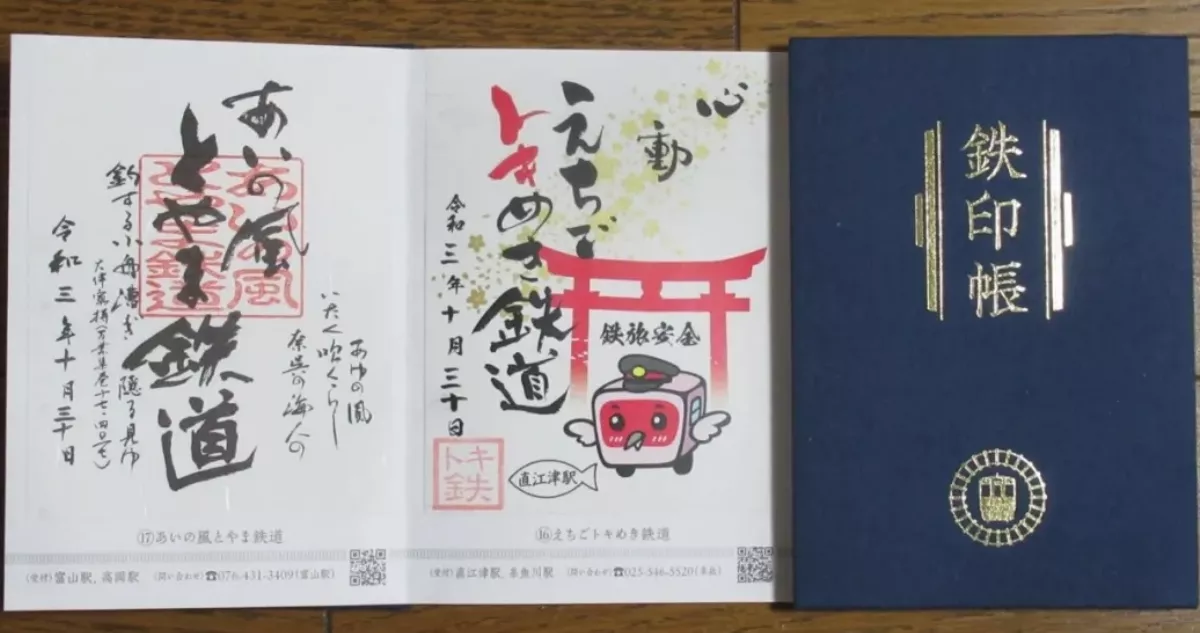 あいの風
とやま鉄道
あいの風
とやま鉄道
あゆの風
いたく吹くらし
奈呉の海人の
釣する小舟漕ぎ隠る見ゆ
大伴家持(万葉集巻十七・四〇一七)
令和三年十月三十日
⑰あいの風とやま鉄道
(受付)富山駅、高岡駅 (問い合わせ)☎076-431-3409(富山駅)
心動
えちご
トキめき鉄道
令和三年十月三十日
鉄旅安全
トキ鉄
直江津駅
⑯えちごトキめき鉄道
(受付)直江津駅、糸魚川駅 (問い合わせ)☎025-546-5520(本社)
鉄印帳